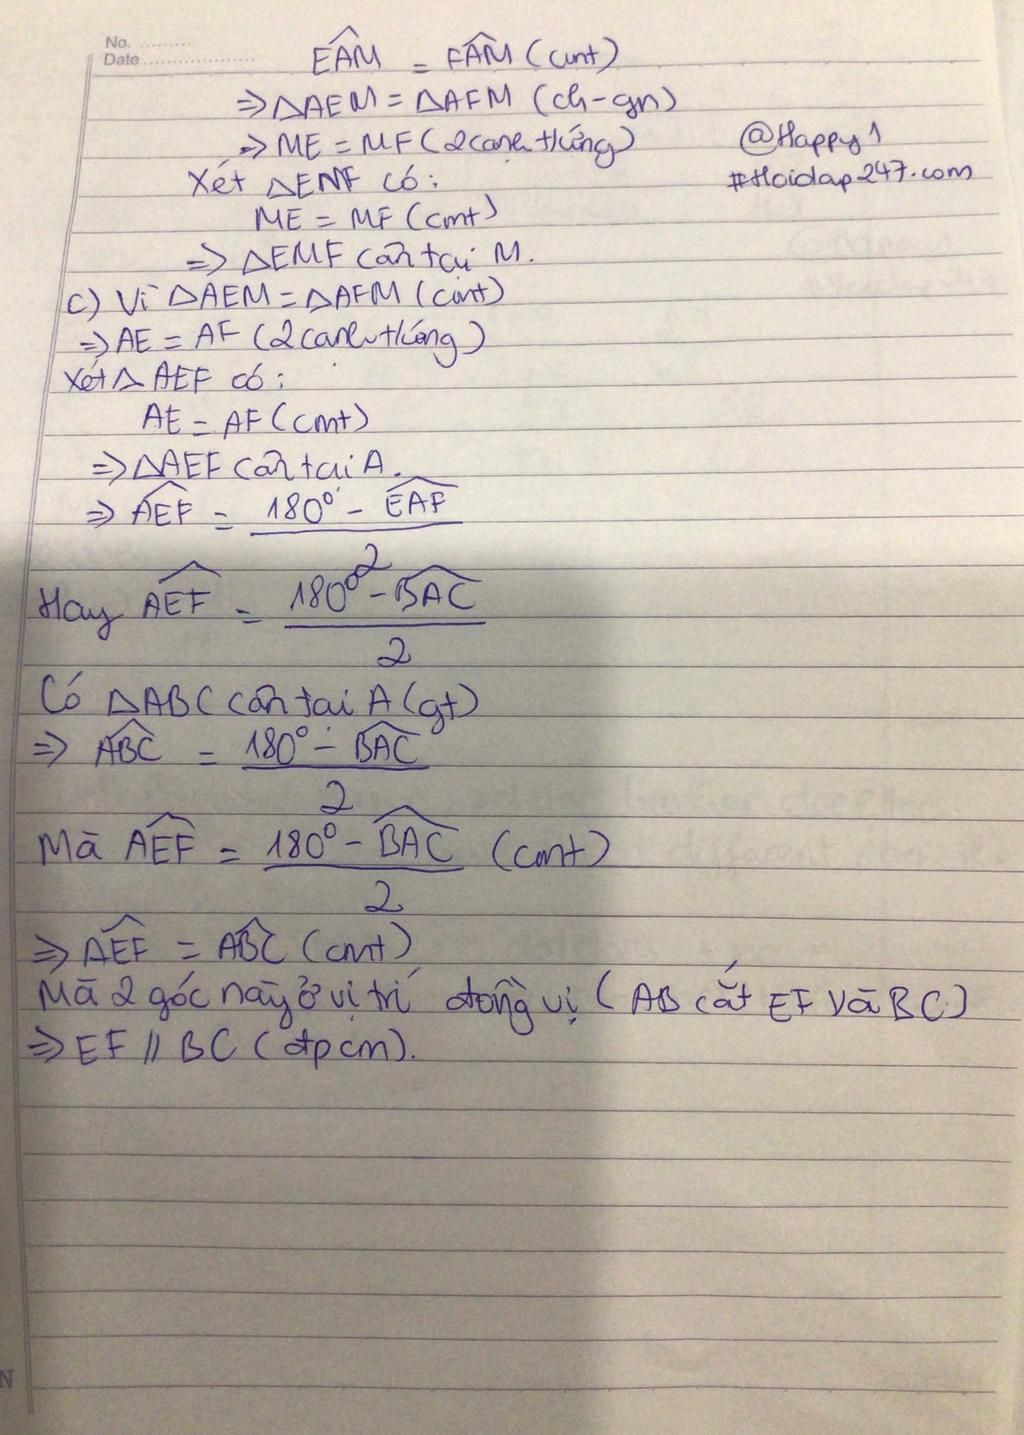 No. ..........
Date ....................
EÂM = FÂM (cmt)
=> △AEM = △AFM (ch-gn)
=> ME = MF (2 cạnh t/ứng)
@Happy1
#Hoidap247.com
Xét △EMF có:
ME = MF (cmt)
=> △EMF cân tại M.
c) Vì △AEM = △AFM (cmt)
=> AE = AF (2 cạnh t/ứng)
Xét △AEF có:
AE = AF (cmt)
=> △AEF cân tại A.
=> \widehat{AEF} = \frac{180° - \widehat{EAF}}{2}
Hay \widehat{AEF} = \frac{180° - \widehat{BAC}}{2}
Có △ABC cân tại A (gt)
=> \widehat{ABC} = \frac{180° - \widehat{BAC}}{2}
Mà \widehat{AEF} = \frac{180° - \widehat{BAC}}{2} (cmt)
=> \widehat{AEF} = \widehat{ABC} (cmt)
Mà 2 góc này ở vị trí đồng vị (AB cắt EF và BC)
=> EF // BC (đpcm).
N